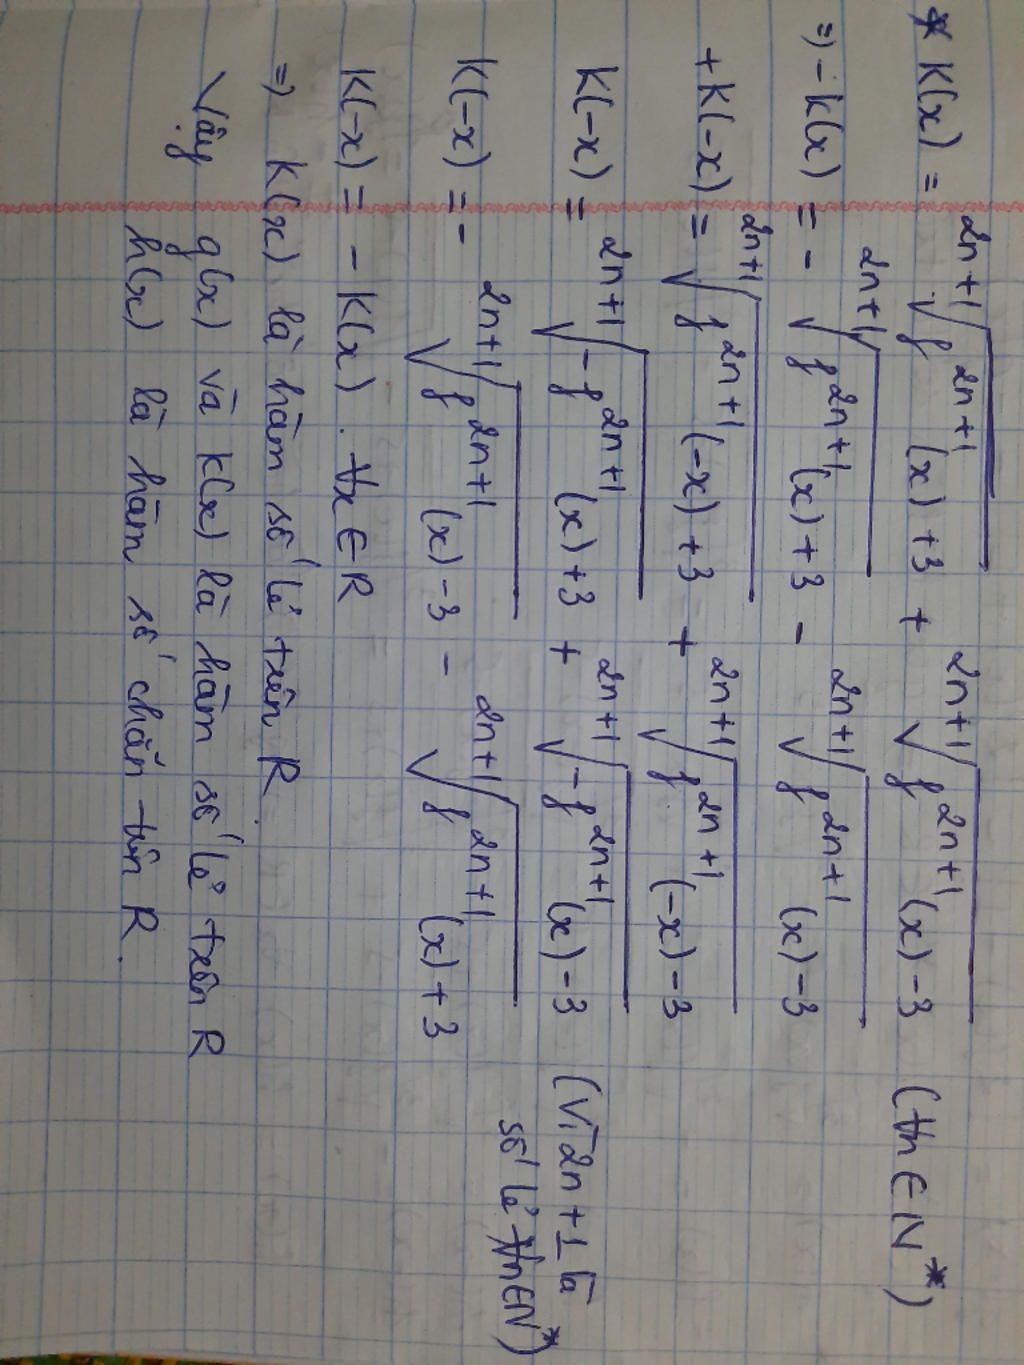 * K(x) = ²ⁿ⁺¹√(f²ⁿ⁺¹(x) + 3) + ²ⁿ⁺¹√(f²ⁿ⁺¹(x) - 3) (∀n ∈ N*)
=) - K(x) = - ²ⁿ⁺¹√(f²ⁿ⁺¹(x) + 3) - ²ⁿ⁺¹√(f²ⁿ⁺¹(x) - 3)
+ K(-x) = ²ⁿ⁺¹√(f²ⁿ⁺¹(-x) + 3) + ²ⁿ⁺¹√(f²ⁿ⁺¹(-x) - 3)
K(-x) = ²ⁿ⁺¹√(-f²ⁿ⁺¹(x) + 3) + ²ⁿ⁺¹√(-f²ⁿ⁺¹(x) - 3) (Vì 2n + 1 là
số lẻ ∀n∈N*)
K(-x) = - ²ⁿ⁺¹√(f²ⁿ⁺¹(x) - 3) - ²ⁿ⁺¹√(f²ⁿ⁺¹(x) + 3)
K(-x) = - K(x). ∀x ∈ R
=) K(x) là hàm số lẻ trên R.
Vậy g(x) và K(x) là hàm số lẻ trên R
h(x) là hàm số chẵn trên R.